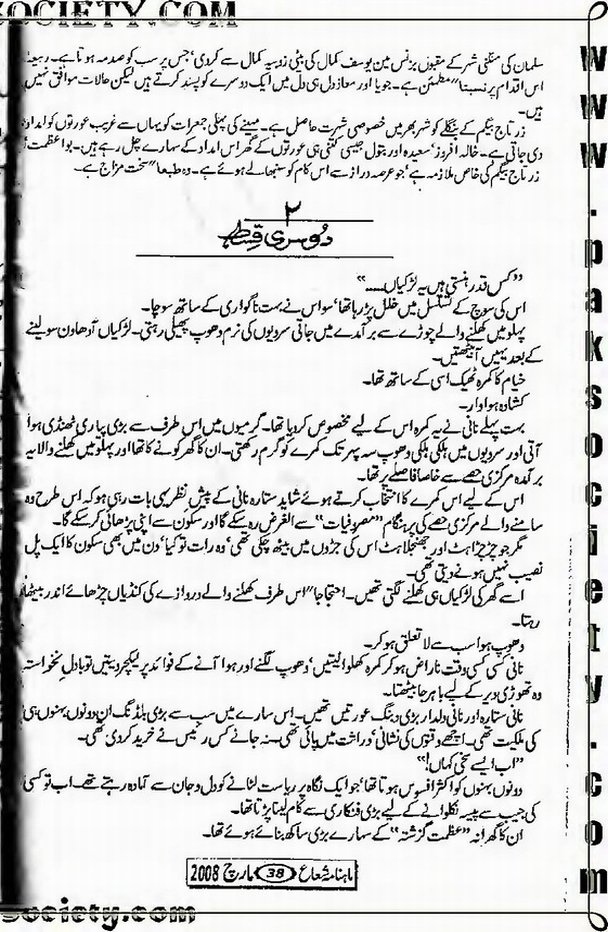 SOCIETY.COM
سلمان کی منگنی شہر کے مقبول بزنس مین یوسف کمال کی بیٹی زوبیہ کمال سے کردی‘ جس پر سب کو صدمہ ہوتا ہے۔ ربیعہ
اس اقدام پر نسبتا" مطمئن ہے۔ جویا اور معاذ دل ہی دل میں ایک دوسرے کو پسند کرتے ہیں لیکن حالات موافق نہیں
ہیں۔
زر تاج بیگم کے بنگلے کو شہر بھر میں خصوصی شہرت حاصل ہے۔ مہینے کی پہلی جمعرات کو یہاں سے غریب عورتوں کو امداد
دی جاتی ہے۔ خالہ افروز‘ سعیدہ اور بتول جیسی کتنی ہی عورتوں کے گھر اس امداد کے سہارے چل رہے ہیں۔ بوا عظمت‘
زر تاج بیگم کی خاص ملازمہ ہے‘ جو عرصہ دراز سے اس کام کو سنبھالے ہوئے ہے۔ وہ طبعا" سخت مزاج ہے۔
۲
دوسری قسط
"کس قدر ہنستی ہیں یہ لڑکیاں۔۔۔۔"
اس کی سوچ کے تسلسل میں خلل پڑ رہا تھا‘ سو اس نے بہت ناگواری کے ساتھ سوچا۔
پہلو میں کھلنے والے چوڑے سے برآمدے میں جاتی سردیوں کی نرم دھوپ پھیلی رہتی۔ لڑکیاں آدھا دن سو لینے
کے بعد یہیں آ بیٹھتیں۔
خیام کا کمرہ ٹھیک اسی کے ساتھ تھا۔
کشادہ ہوادار۔
بہت پہلے نانی نے یہ کمرہ اس کے لیے مخصوص کردیا تھا۔ گرمیوں میں اس طرف سے بڑی پیاری ٹھنڈی ہوا
آتی اور سردیوں میں ہلکی ہلکی دھوپ سہ پہر تک کمرے کو گرم رکھتی۔ ان کا گھر کونے کا تھا اور پہلو میں کھلنے والا یہ
برآمدہ مرکزی حصے سے خاصا فاصلے پر تھا۔
اس کے لیے اس کمرے کا انتخاب کرتے ہوئے شاید ستارہ نانی کے پیش نظر یہی بات رہی ہو کہ اس طرح وہ
سامنے والے مرکزی حصے کی پرہنگام "مصروفیات" سے الغرض رہ سکے گا اور سکون سے اپنی پڑھائی کرسکے گا۔
مگر جو چڑچڑاہٹ اور جھنجلاہٹ اس کی جڑوں میں بیٹھ چکی تھی‘ وہ رات تو کیا‘ دن میں بھی سکون کا ایک پل
نصیب نہیں ہونے دیتی تھی۔
اسے گھر کی لڑکیاں ہی کھلنے لگتی تھیں۔ احتجاجا" اس طرف کھلنے والے دروازے کی کنڈیاں چڑھائے اندر بیٹھا
رہتا۔
دھوپ ہوا سب سے لاتعلق ہو کر۔
نانی کسی کسی وقت ناراض ہو کر کمرہ کھلوا لیتیں‘ دھوپ لگنے اور ہوا آنے کے فوائد پر لیکچر دیتیں تو بادل نخواستہ
وہ تھوڑی دیر کے لیے باہر جا بیٹھتا۔
نانی ستارہ اور نانی دلدار بڑی دبنگ عورتیں تھیں۔ اس سارے میں سب سے بڑی بلڈنگ ان دونوں بہنوں ہی
کی ملکیت تھی۔ اچھے وقتوں کی نشانی‘ وراثت میں پائی تھی۔ نہ جانے کس رئیس نے خرید کر دی تھی۔
"اب ایسے سخی کہاں!"
دونوں بہنوں کو اکثر افسوس ہوتا تھا‘ جو ایک نگاہ پر ریاست لٹانے کو دل و جان سے آمادہ رہتے تھے۔ اب تو کسی
کی جیب سے پیسہ نکلوانے کے لیے بڑی فنکاری سے کام لینا پڑتا تھا۔
ان کا گھرانہ "عظمت گزشتہ" کے سہارے بڑی ساکھ بنائے ہوئے تھا۔
ماہنامہ شعاع 38 مارچ 2008
society.com
www.paksociety.com